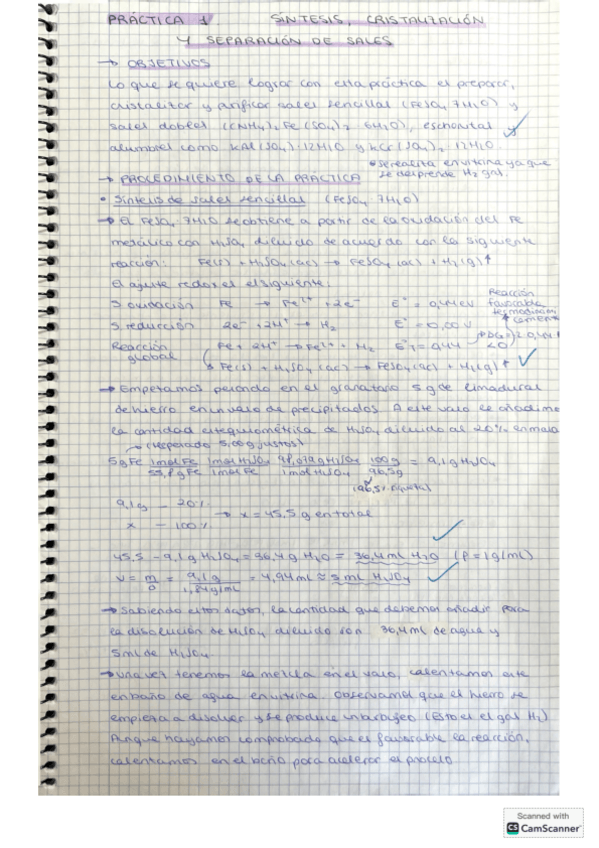 PRÁCTICA 1 SÍNTESIS, CRISTALIZACIÓN
Y SEPARACIÓN DE SALES
→ OBJETIVOS
Lo que se quiere lograr con esta práctica es preparar,
cristalizar y purificar sales sencillas (FeSO4 7H2O) y
sales dobles ((NH4)2 Fe (SO4)2 6H2O),
alumbres como KAl(SO4)2·12H2O y KCr(SO4)2·12H2O.
• se realiza en vitrina ya que
se desprende H2 gas.
→ PROCEDIMIENTO DE LA PRÁCTICA
• Síntesis de sales sencillas (FeSO4 7H2O)
→ El FeSO4 7H2O se obtiene a partir de la oxidación del Fe
metálico con H2SO4 diluido de acuerdo con la siguiente
reacción: Fe(s) + H2SO4(ac) → FeSO4(ac) + H2(g)↑
El ajuste redox es el siguiente:
S oxidación Fe → Fe2+ + 2e- E° = 0,44 eV
S reducción 2e- + 2H+ → H2 E° = 0,00 V
Reacción
favorable
termodinámi
camente
Reacción
global
Fe + 2H+ → Fe2+ + H2 E°T = 0,44
<0
Fe(s) + H2SO4(ac) → FeSO4(ac) + H2(g)↑
→ Empezamos pesando en el granatario 5g de limaduras
de hierro en un vaso de precipitados. A este vaso le añadimos
la cantidad estequiométrica de H2SO4 diluido al 20% en masa
(He pesado 5,00g justos)
5gFe 1molFe 1molH2SO4 98,079gH2SO4 100g = 9,1g H2SO4
55,8gFe 1molFe 1molH2SO4 96,5g
(96,5% riqueza)
9,1g — 20%
x — 100%
→ x = 45,5 g en total
45,5 - 9,1g H2SO4 = 36,4g H2O = 36,4ml H2O (ρ = 1g/ml)
V = m/ρ = 9,1g/1,84g/ml = 4,94ml ≈ 5ml H2SO4
→ Sabiendo estos datos, la cantidad que debemos añadir para
la disolución de H2SO4 diluido son 36,4ml de agua y
5ml de H2SO4.
→ Una vez tenemos la mezcla en el vaso, calentamos este
en baño de agua en vitrina. Observamos que el hierro se
empieza a disolver y se produce un burbujeo (Esto es el gas H2)
Aunque hayamos comprobado que es favorable la reacción,
calentamos en el baño para acelerar el proceso
Scanned with
CS CamScanner